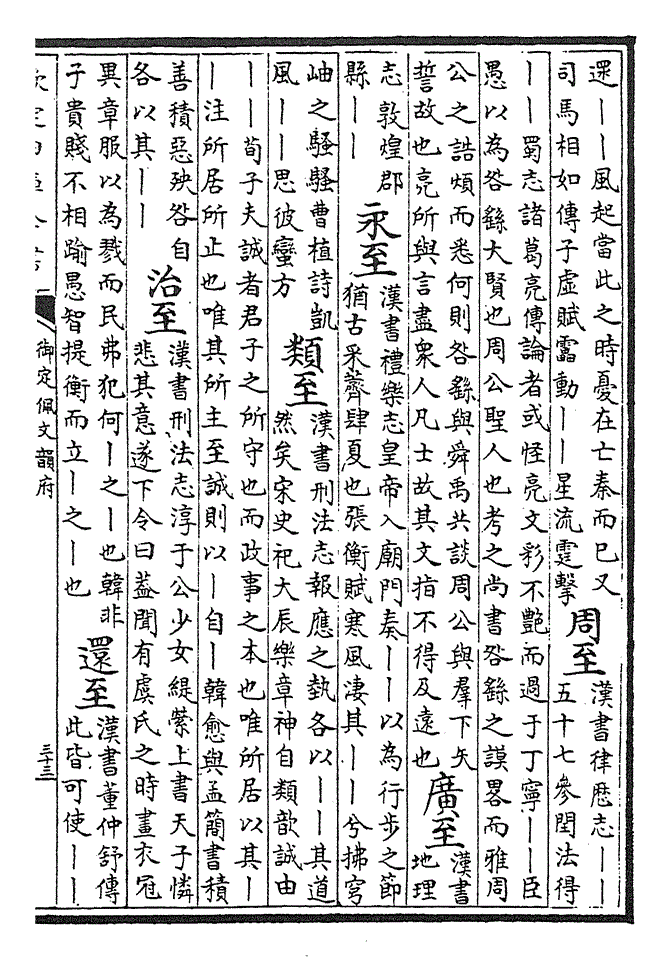 還丨丨風起當此之時憂在亡秦而已又
司馬相如傳子虛賦靁動丨丨星流霆擊
周至
漢書律歷志丨丨
五十七參閏法得
丨丨蜀志諸葛亮傳論者或怪亮文彩不艷而過于丁寧丨丨臣
愚以為咎繇大賢也周公聖人也考之尚書咎繇之謨畧而雅周
公之誥煩而悉何則咎繇與舜禹共談周公與羣下矢
誓故也亮所與言盡衆人凡士故其文指不得及遠也
廣至
漢書
地理
志敦煌郡
縣丨丨
永至
漢書禮樂志皇帝入廟門奏丨丨以為行步之節
猶古采薺肆夏也張衡賦寒風淒其丨丨兮拂穹
岫之騷騷曹植詩凱
風丨丨思彼蠻方
類至
漢書刑法志報應之埶各以丨丨其道
然矣宋史祀大辰樂章神自類歆誠由
丨丨荀子夫誠者君子之所守也而政事之本也唯所居以其丨
丨注所居所止也唯其所主至誠則以丨自丨韓愈與孟簡書積
善積惡殃咎自
各以其丨丨
治至
漢書刑法志淳于公少女緹縈上書天子憐
悲其意遂下令曰蓋聞有虞氏之時畫衣冠
異章服以為戮而民弗犯何丨之丨也韓非
子貴賤不相踰愚智提衡而立丨之丨也
還至
漢書董仲舒傳
此皆可使丨丨
欽定四庫全書
御定佩文韻府
三十三